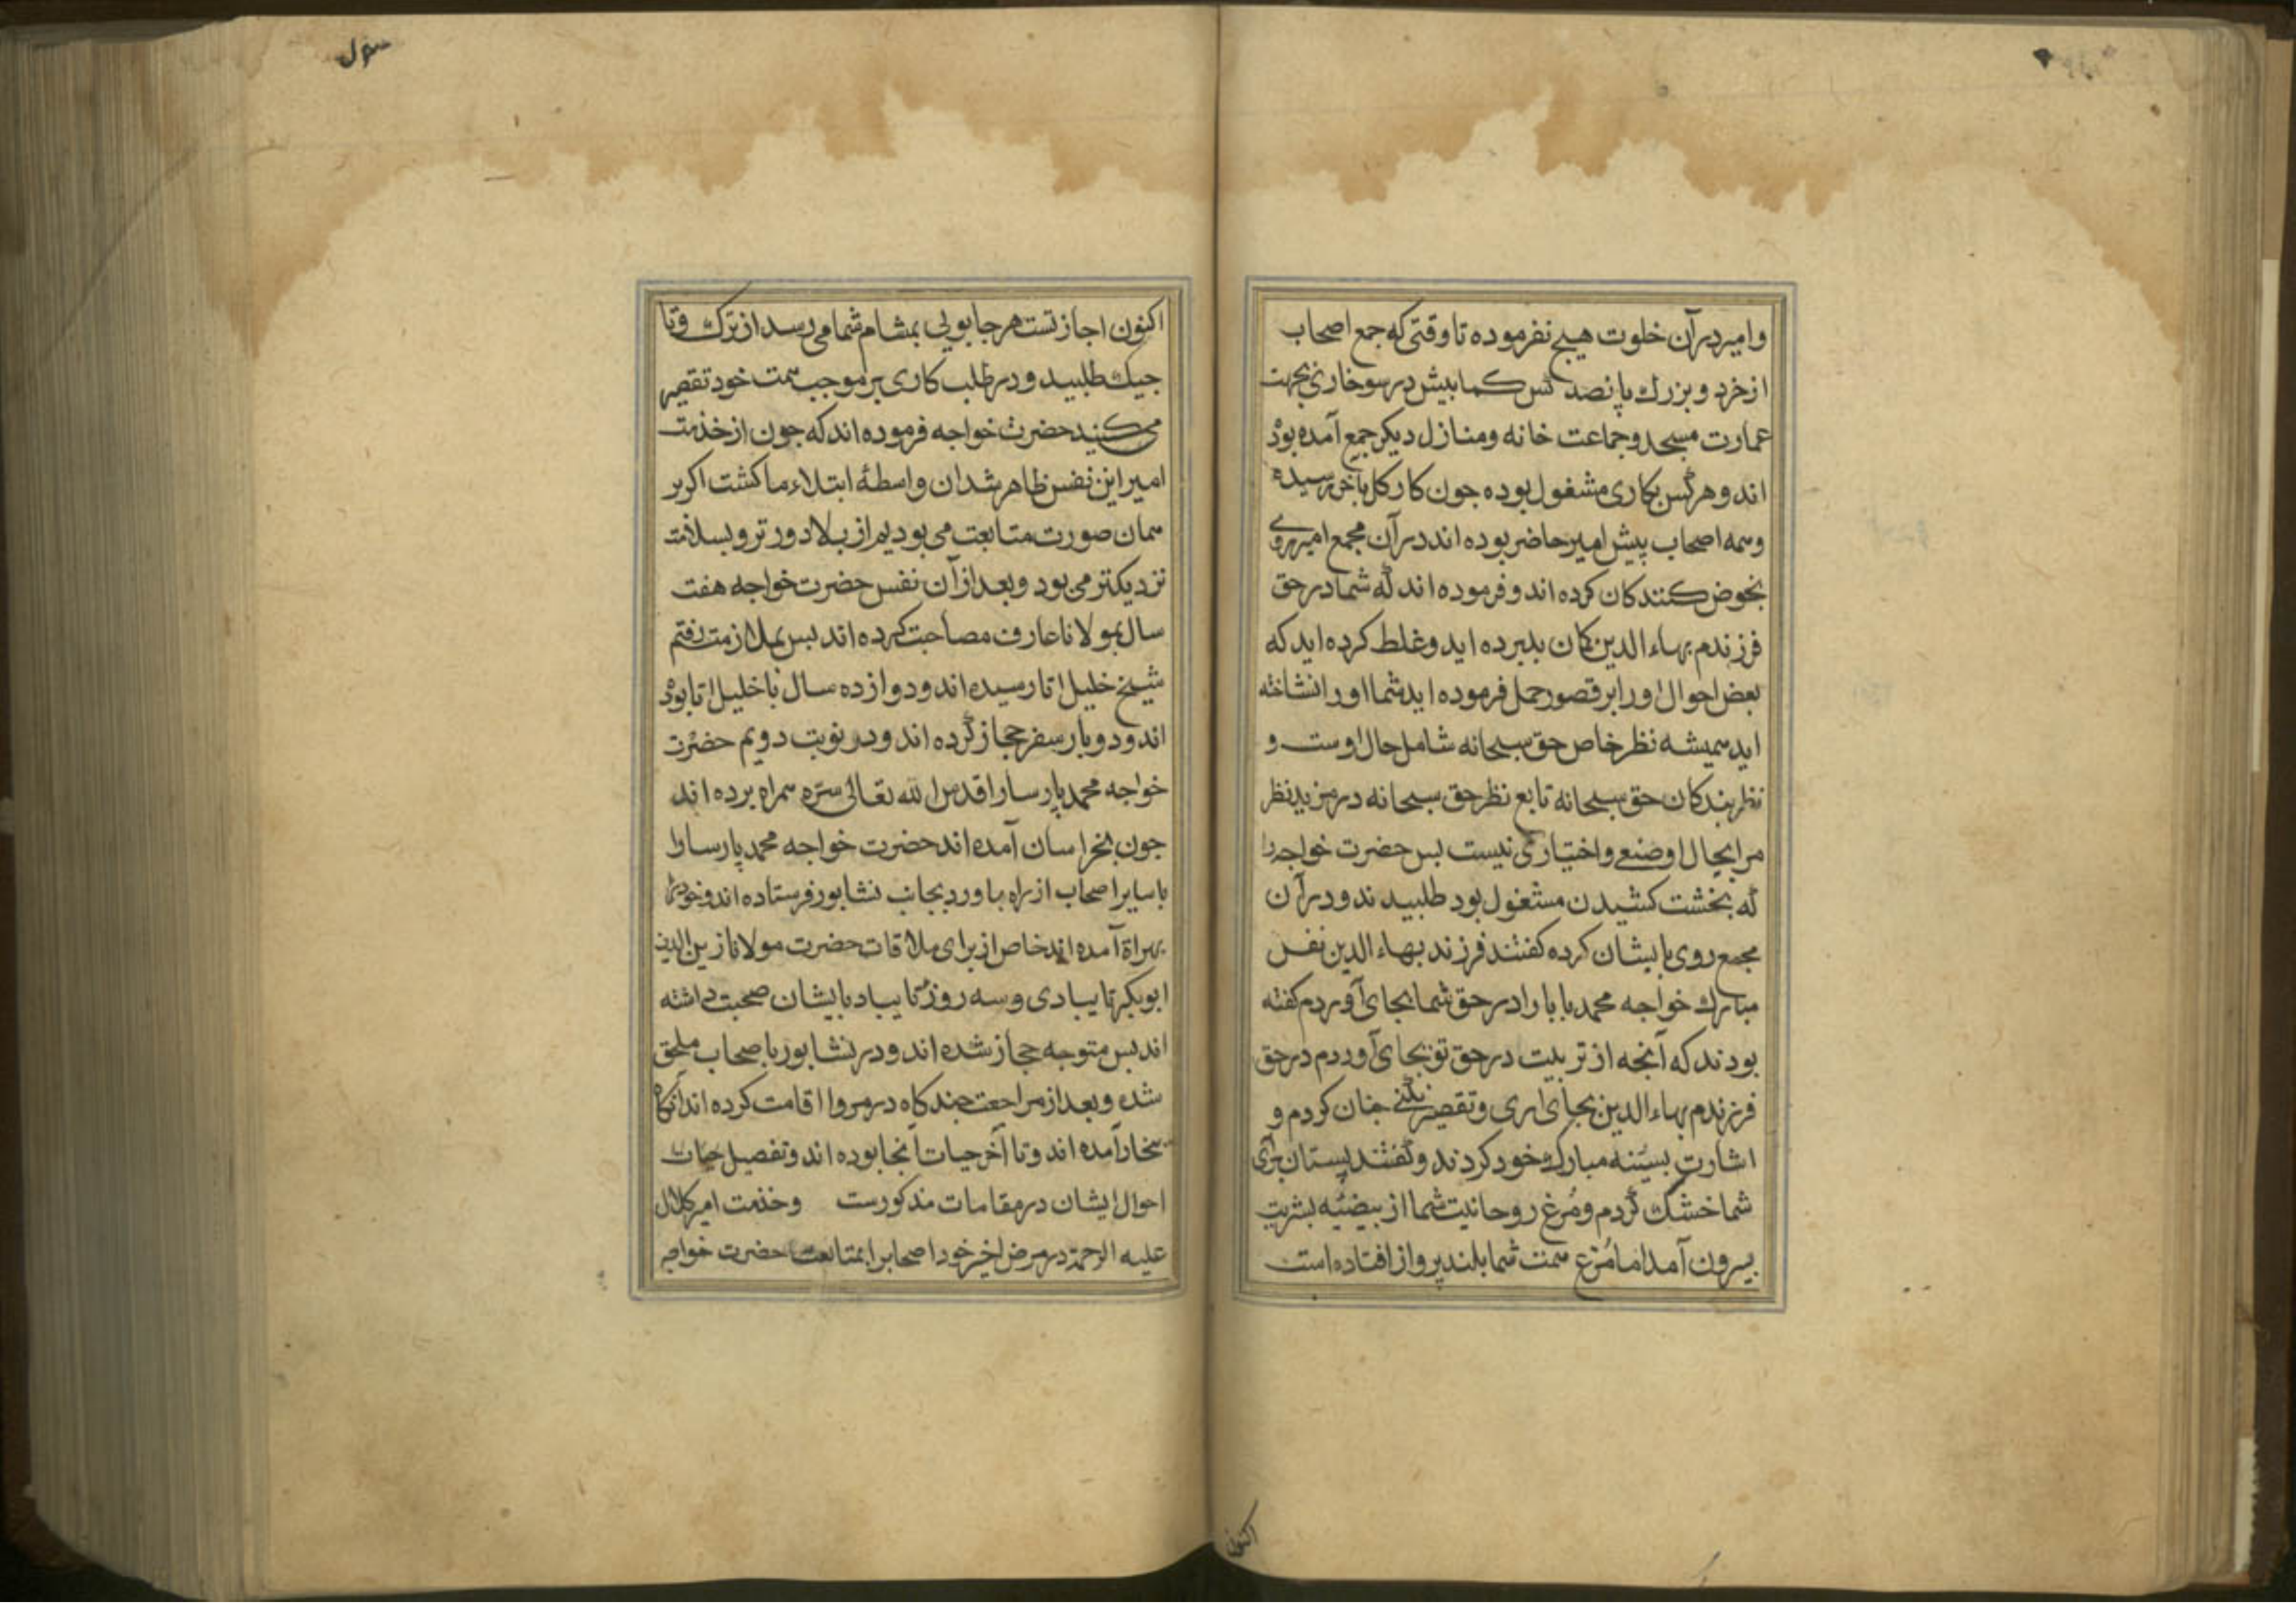 وامیر درآن خلوت هیچ نفرموده تا وقتی که جمع اصحاب
از خرد و بزرك پانصد کس کمابیش در سوخاری بجهت
عمارت مسجد و جماعت خانه ومنازل دیکر جمع آمده بود
اند و هر کس بکاری مشغول بوده جون کار کل باخر رسیده
وهمه اصحاب پیش امیر حاضر بوده اند درآن مجمع امیر روی
بخوض کنندکان کرده اند و فرموده اند که شما در حق
فرزندم بهاء الدین کمان بد برده اید وغلط کرده اید که
بعض احوال او را بر قصور حمل فرموده اید شما او را نشناخته
اید همیشه نظر خاص حق سبحانه شامل حال اوست و
نظر بندکان حق سبحانه تابع نظر حق سبحانه در مزید نظر
مرا بحال او صنعی و اختیاری نیست بس حضرت خواجه را
که بخشت کشیدن مشغول بود طلبیدند و درآن
مجمع روی بایشان کرده کفتند فرزند بهاء الدین نفس
مبارك خواجه محمد بابا را در حق شما بجای آوردم کفته
بودند که آنجه از تربیت در حق تو بجای آوردم در حق
فرزندم بهاء الدین بجای اری و تقصیر نکنی جنان کردم و
اشارت بسینه مبارك خود کردند و کفتند پستان برای
شما خشك کردم و مُرغ روحانیت شما از بیضیه بشریت
بیرون آمد اما مُرغ همت شما بلند پرواز افتاده است
اکنون
سول
اکنون اجازتست هر جا بویی بمشام شما می رسد از ترك و تا
جیك طلبید و در طلب کاری بر موجب همت خود تقصیر
می کنید حضرت خواجه فرموده اند که جون از خدمت
امیر این نفس ظاهر شد ان واسطۀ ابتلاء ما کشت اکر بر
همان صورت متابعت می بودیم از بلا دور تر و بسلامت
نزدیکتر می بود و بعد از آن نفس حضرت خواجه هفت
سال بمولانا عارف مصاحبت کرده اند بس بملازمت قثم
شیخ خلیل اتا رسیده اند و دوازده سال با خلیل اتا بود
اند و دوبار سفر حجاز کرده اند و در نوبت دویم حضرت
خواجه محمد پارسا را قدس الله تعالی سره همراه برده اند
جون بخراسان آمده اند حضرت خواجه محمد پارسا را
با سایر اصحاب از راه باورد بجانب نشابور فرستاده اند و خود
بهراة آمده اند خاص از برای ملاقات حضرت مولانا زین الدین
ابوبکر تایبادی و سه روز تایباد بایشان صحبت داشته
اند بس متوجه حجاز شده اند و در نشابور باصحاب ملحق
شده و بعد از مراجعت چند کاه در مرو ا اقامت کرده اند آنکاه
بخارا آمده اند و تا آخر حیات آنجا بوده اند و تفصیل
احوال ایشان در مقامات مذکورست و خدمت امیر کلال
علیه الرحمة در مرض اخیر خود اصحاب را بمتابعت حضرت خواجه